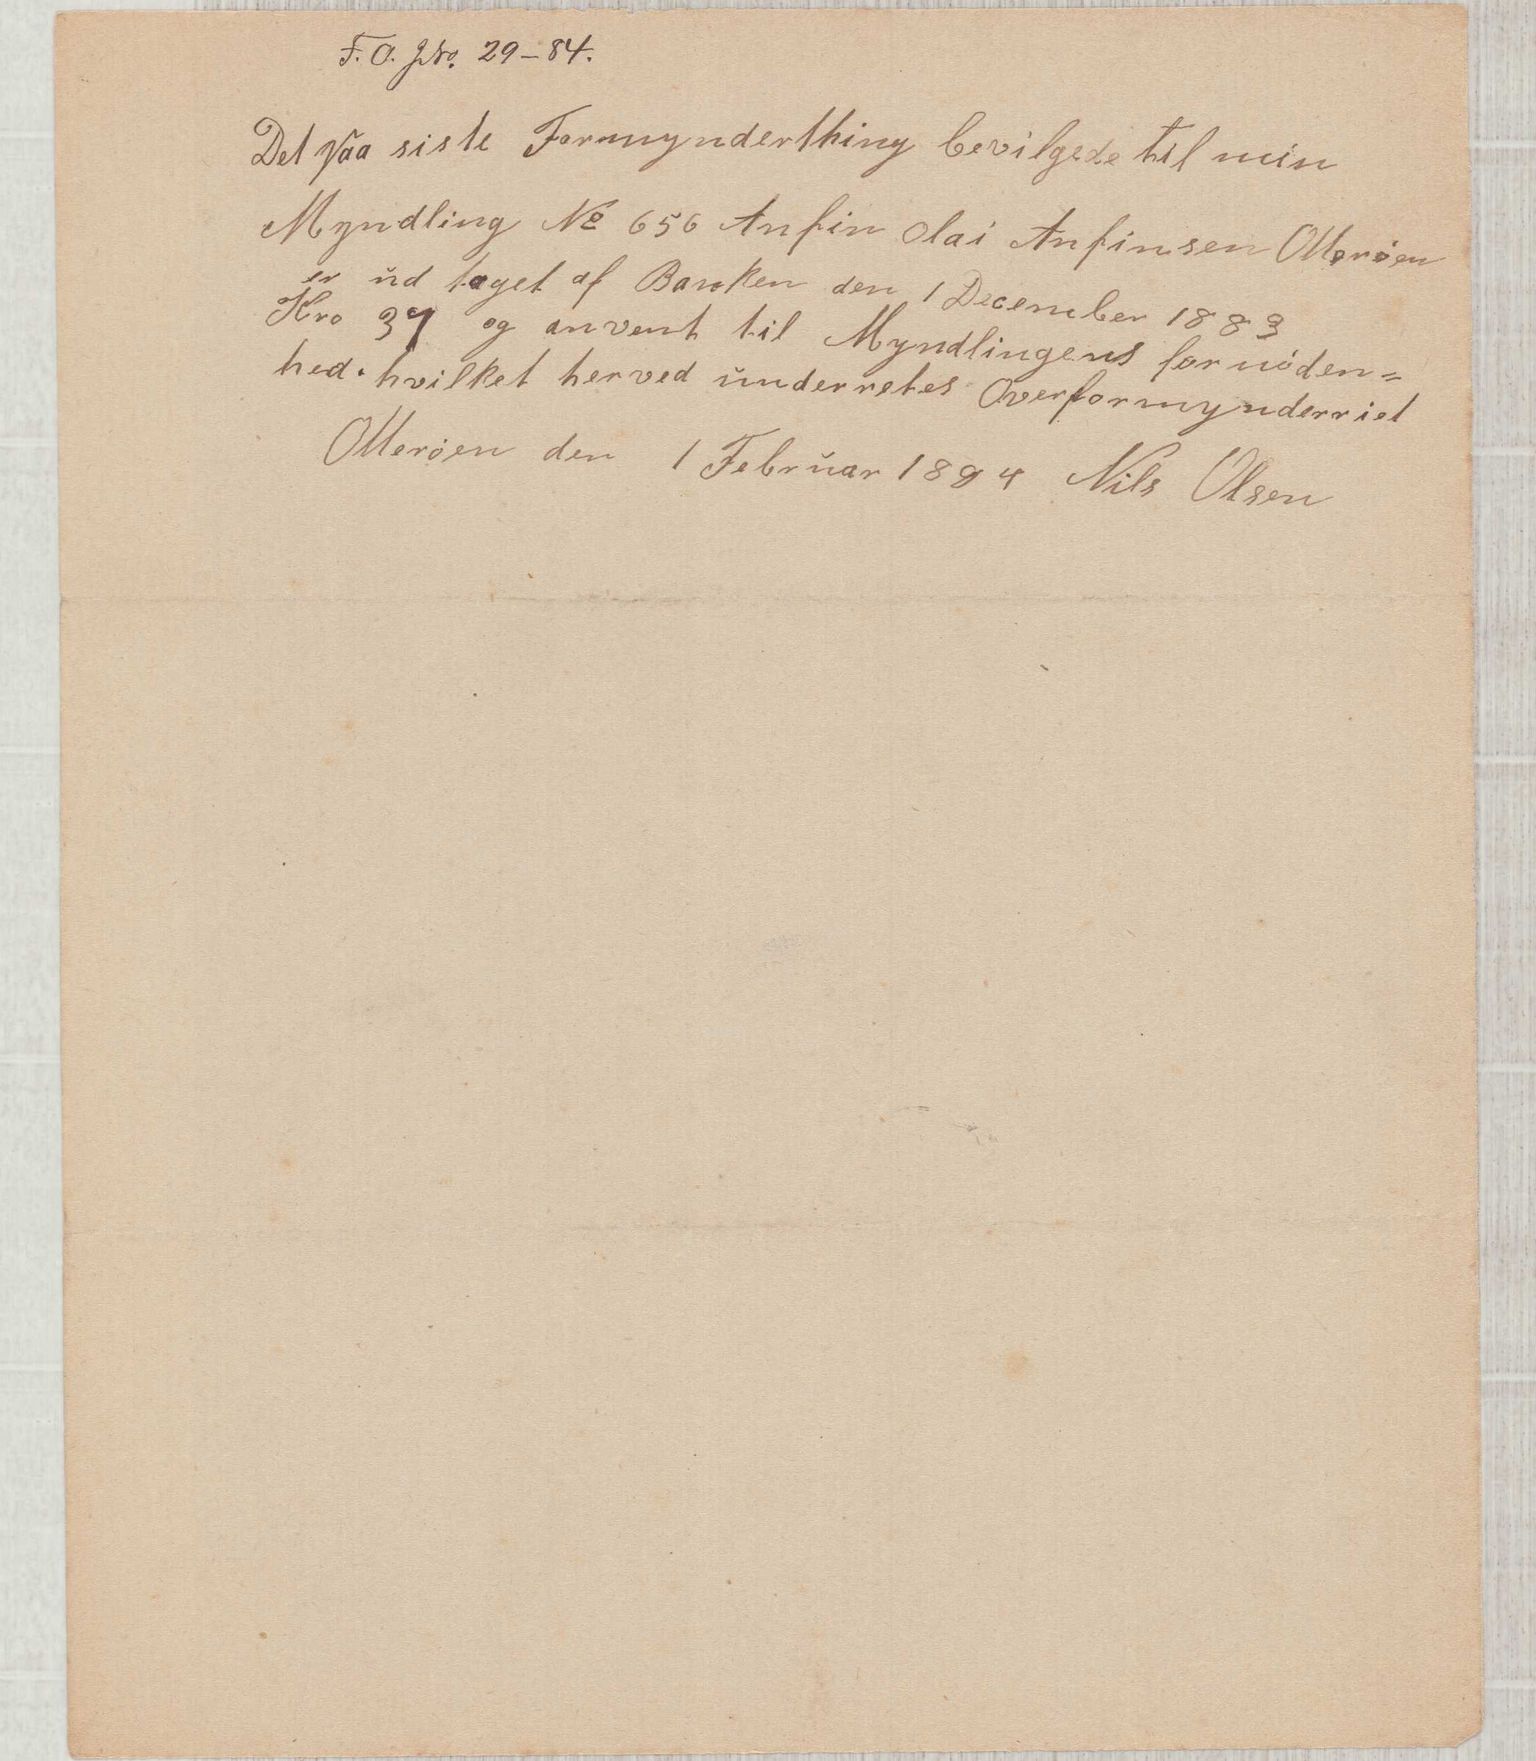 F. O. JNo. 29-84.
Det paa siste Formynderthing bevilgede til min
Myndling № 656 Anfin Olai Anfinsen Otterøen
er ud taget af Banken den 1 December 1883
Kro 37 og anvent til Myndlingens fornøden=
hed. hvilket herved underretes Overformynderriet
Otterøen den 1 Februar 1884 Nils Olsen